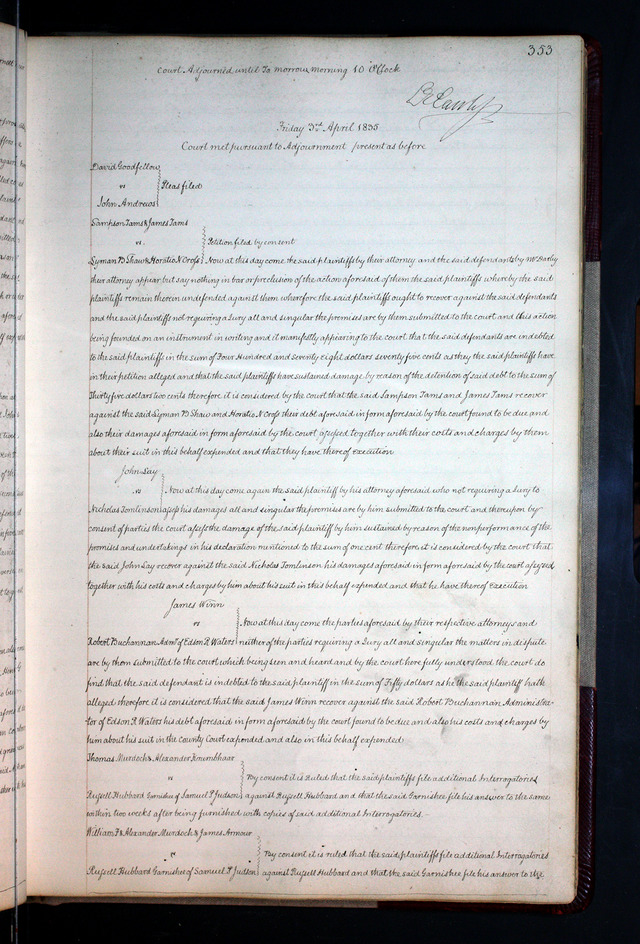 353
Court Adjourned until To morrow morning 10 O'Clock
Friday 3rd April 1835
Court met pursuant to Adjournment present as before
David Goodfellow
vs Pleas filed
John Andrews
Sampson Tams & James Tams
vs. Petition filed by consent
Lyman D Shaw & Horatio N Cross Now at this day come the said plaintiffs by their attorney and the said defendants by Mr Darby
their attorney appear but say nothing in bar or preclusion of the action aforesaid of them the said plaintiffs whereby the said
plaintiffs remain therein undefended against them wherefore the said plaintiffs ought to recover against the said defendants
and the said plaintiffs not requiring a Jury all and singular the premises are by them submitted to the court and this action
being founded on an instrument in writing and it manifestly appearing to the court that the said defendants are indebted
to the said plaintiffs in the sum of Four Hundred and seventy eight dollars seventy five cents as they the said plaintiffs have
in their petition alleged and that the said plaintiffs have sustained damage by reason of the detention of said debt to the sum of
Thirty five dollars two cents therefore it is considered by the court that the said Sampson Tams and James Tams recover
against the said Lyman D Shaw and Horatio N Cross their debt aforesaid in form aforesaid by the court found to be due and
also their damages aforesaid in form aforesaid by the court assessed together with their costs and charges by them
about their suit in this behalf expended and that they have thereof execution
John Lay
vs Now at this day come again the said plaintiff by his attorney aforesaid who not requiring a Jury to
Nicholas Tomlinson assess his damages all and singular the premises are by him submitted to the court and thereupon by
consent of parties the court assess the damage of the said plaintiff by him sustained by reason of the nonperformance of the
promises and undertakings in his declaration mentioned to the sum of one cent therefore it is considered by the court that
the said John Lay recover against the said Nicholas Tomlinson his damages aforesaid in form aforesaid by the court assessed
together with his costs and charges by him about his suit in this behalf expended and that he have thereof Execution
James Winn
vs Now at this day come the parties aforesaid by their respective attorneys and
Robert Buchannan Admr of Edson R Waters neither of the parties requiring a Jury all and singular the matters in dispute
are by them submitted to the court which being seen and heard and by the court here fully understood the court do
find that the said defendant is indebted to the said plaintiff in the sum of Fifty dollars as he the said plaintiff hath
alleged therefore it is considered that the said James Winn recover against the said Robert Buchannan Administra-
tor of Edson R Waters his debt aforesaid in form aforesaid by the court found to be due and also his costs and charges by
him about his suit in the county Court expended and also in this behalf expended
Thomas Murdock & Alexander
vs By consent it is Ruled that the said plaintiffs file additional Interrogatories
Russell Hubbard Garnishee of Samuel P Judson against Russell Hubbard and that the said Garnishee file his answer to the same
within two weeks after being furnished with copies of said additional Interrogatories.
William F & Alexander Murdock & James Armour
vs By consent it is ruled that the said plaintiffs file additional Interrogatories
Russell Hubbard Garnishee of Samuel P Judson against Russell Hubbard and that the said Garnishee file his answer to the